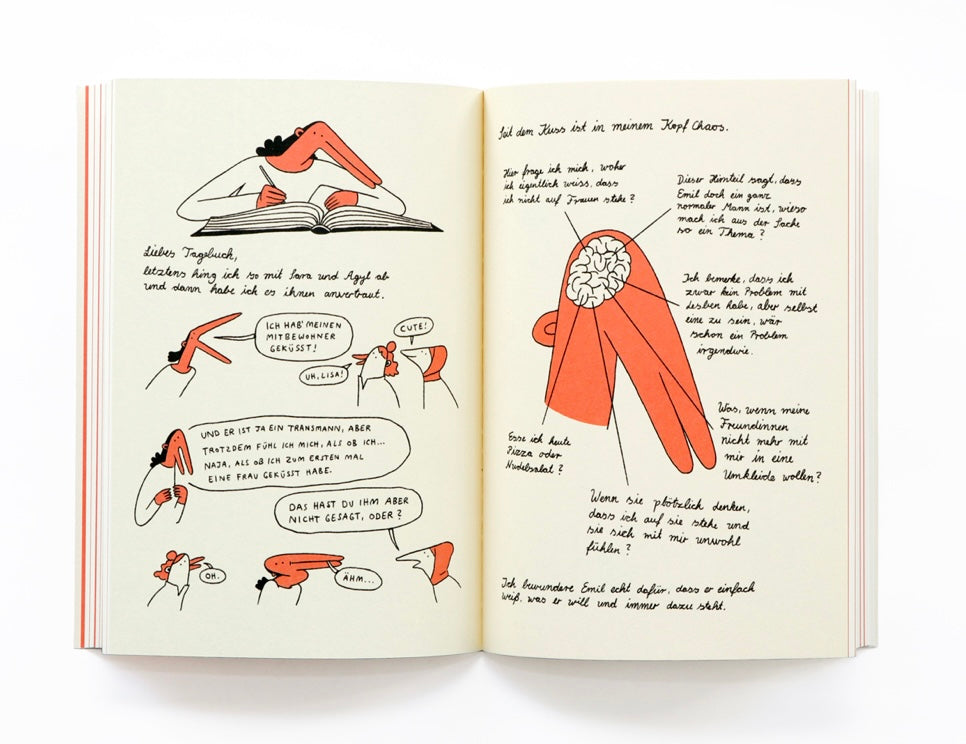 Liebes Tagebuch,
letztens hing ich so mit Sara und Agyl ab
und dann habe ich es ihnen anvertraut.
ICH HAB' MEINEN
MITBEWOHNER
GEKÜSST!
UH, LISA!
CUTE!
UND ER IST JA EIN TRANSMANN, ABER
TROTZDEM FÜHL ICH MICH, ALS OB ICH...
NAJA, ALS OB ICH ZUM ERSTEN MAL
EINE FRAU GEKÜSST HABE.
DAS HAST DU IHM ABER
NICHT GESAGT, ODER?
OH.
ÄHM...
Seit dem Kuss ist in meinem Kopf Chaos.
Hier frage ich mich, woher
ich eigentlich weiss, dass
ich nicht auf Frauen stehe?
Dieser Hirnteil sagt, dass
Emil doch ein ganz
normaler Mann ist, wieso
mach ich aus der Sache
so ein Thema?
Ich bemerke, dass ich
zwar kein Problem mit
Lesben habe, aber selbst
eine zu sein, wär
schon ein Problem
irgendwie.
Was, wenn meine
Freundinnen
nicht mehr mit
mir in eine
Umkleide wollen?
Esse ich heute
Pizza oder
Nudelsalat?
Wenn sie plötzlich denken,
dass ich auf sie stehe und
sie sich mit mir unwohl
fühlen?
Ich bewundere Emil echt dafür, dass er einfach
weiß, was er will und immer dazu steht.